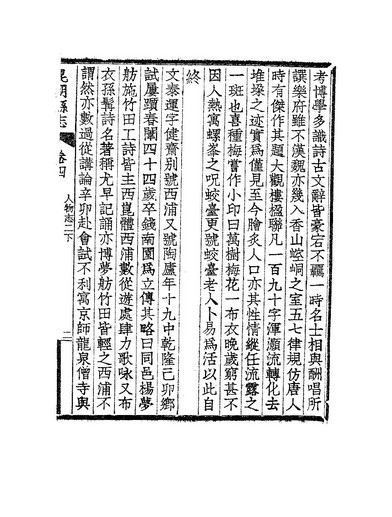 考博學多識詩古文辭皆豪宕不羈一時名士相與酬唱所
譔樂府雖不漢魏亦幾入香山崆峒之室五七律規仿唐人
時有傑作其題大觀樓楹聯凡一百九十字渾灝流轉化去
堆垛之迹實爲僅見至今膾炙人口亦其性情縱任流露之
一斑也喜種梅嘗作小印曰萬樹梅花一布衣晚歲窮甚不
因人熱寓螺峯之呪蛟臺更號蛟臺老人卜易爲活以此自
終
文泰運字健齋別號西浦又號陶廬年十九中乾隆己卯鄉
試屢躓春闈四十四歲卒錢南園爲立傳其略曰同邑楊夢
舫施竹田工詩皆主西崑體西浦數從遊處肆力歌咏又布
衣孫髯詩名著稱尤早記誦亦博夢舫竹田皆輕之西浦不
謂然亦數過從講論辛卯赴會試不利寓京師龍泉僧寺與
昆明縣志 卷四 人物志二下